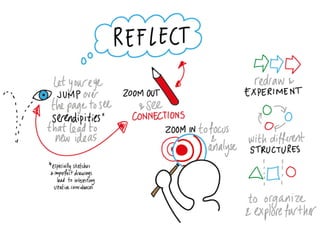 REFLECT
Let your eye
JUMP over
the page to see
serendipities*
that lead to
new ideas
*especially sketches
& imperfect drawings
lead to interesting
creative coincidences
ZOOM OUT
& see
CONNECTIONS
ZOOM IN to focus
&
analyse
redraw &
EXPERIMENT
with different
STRUCTURES
to organize
& explore further